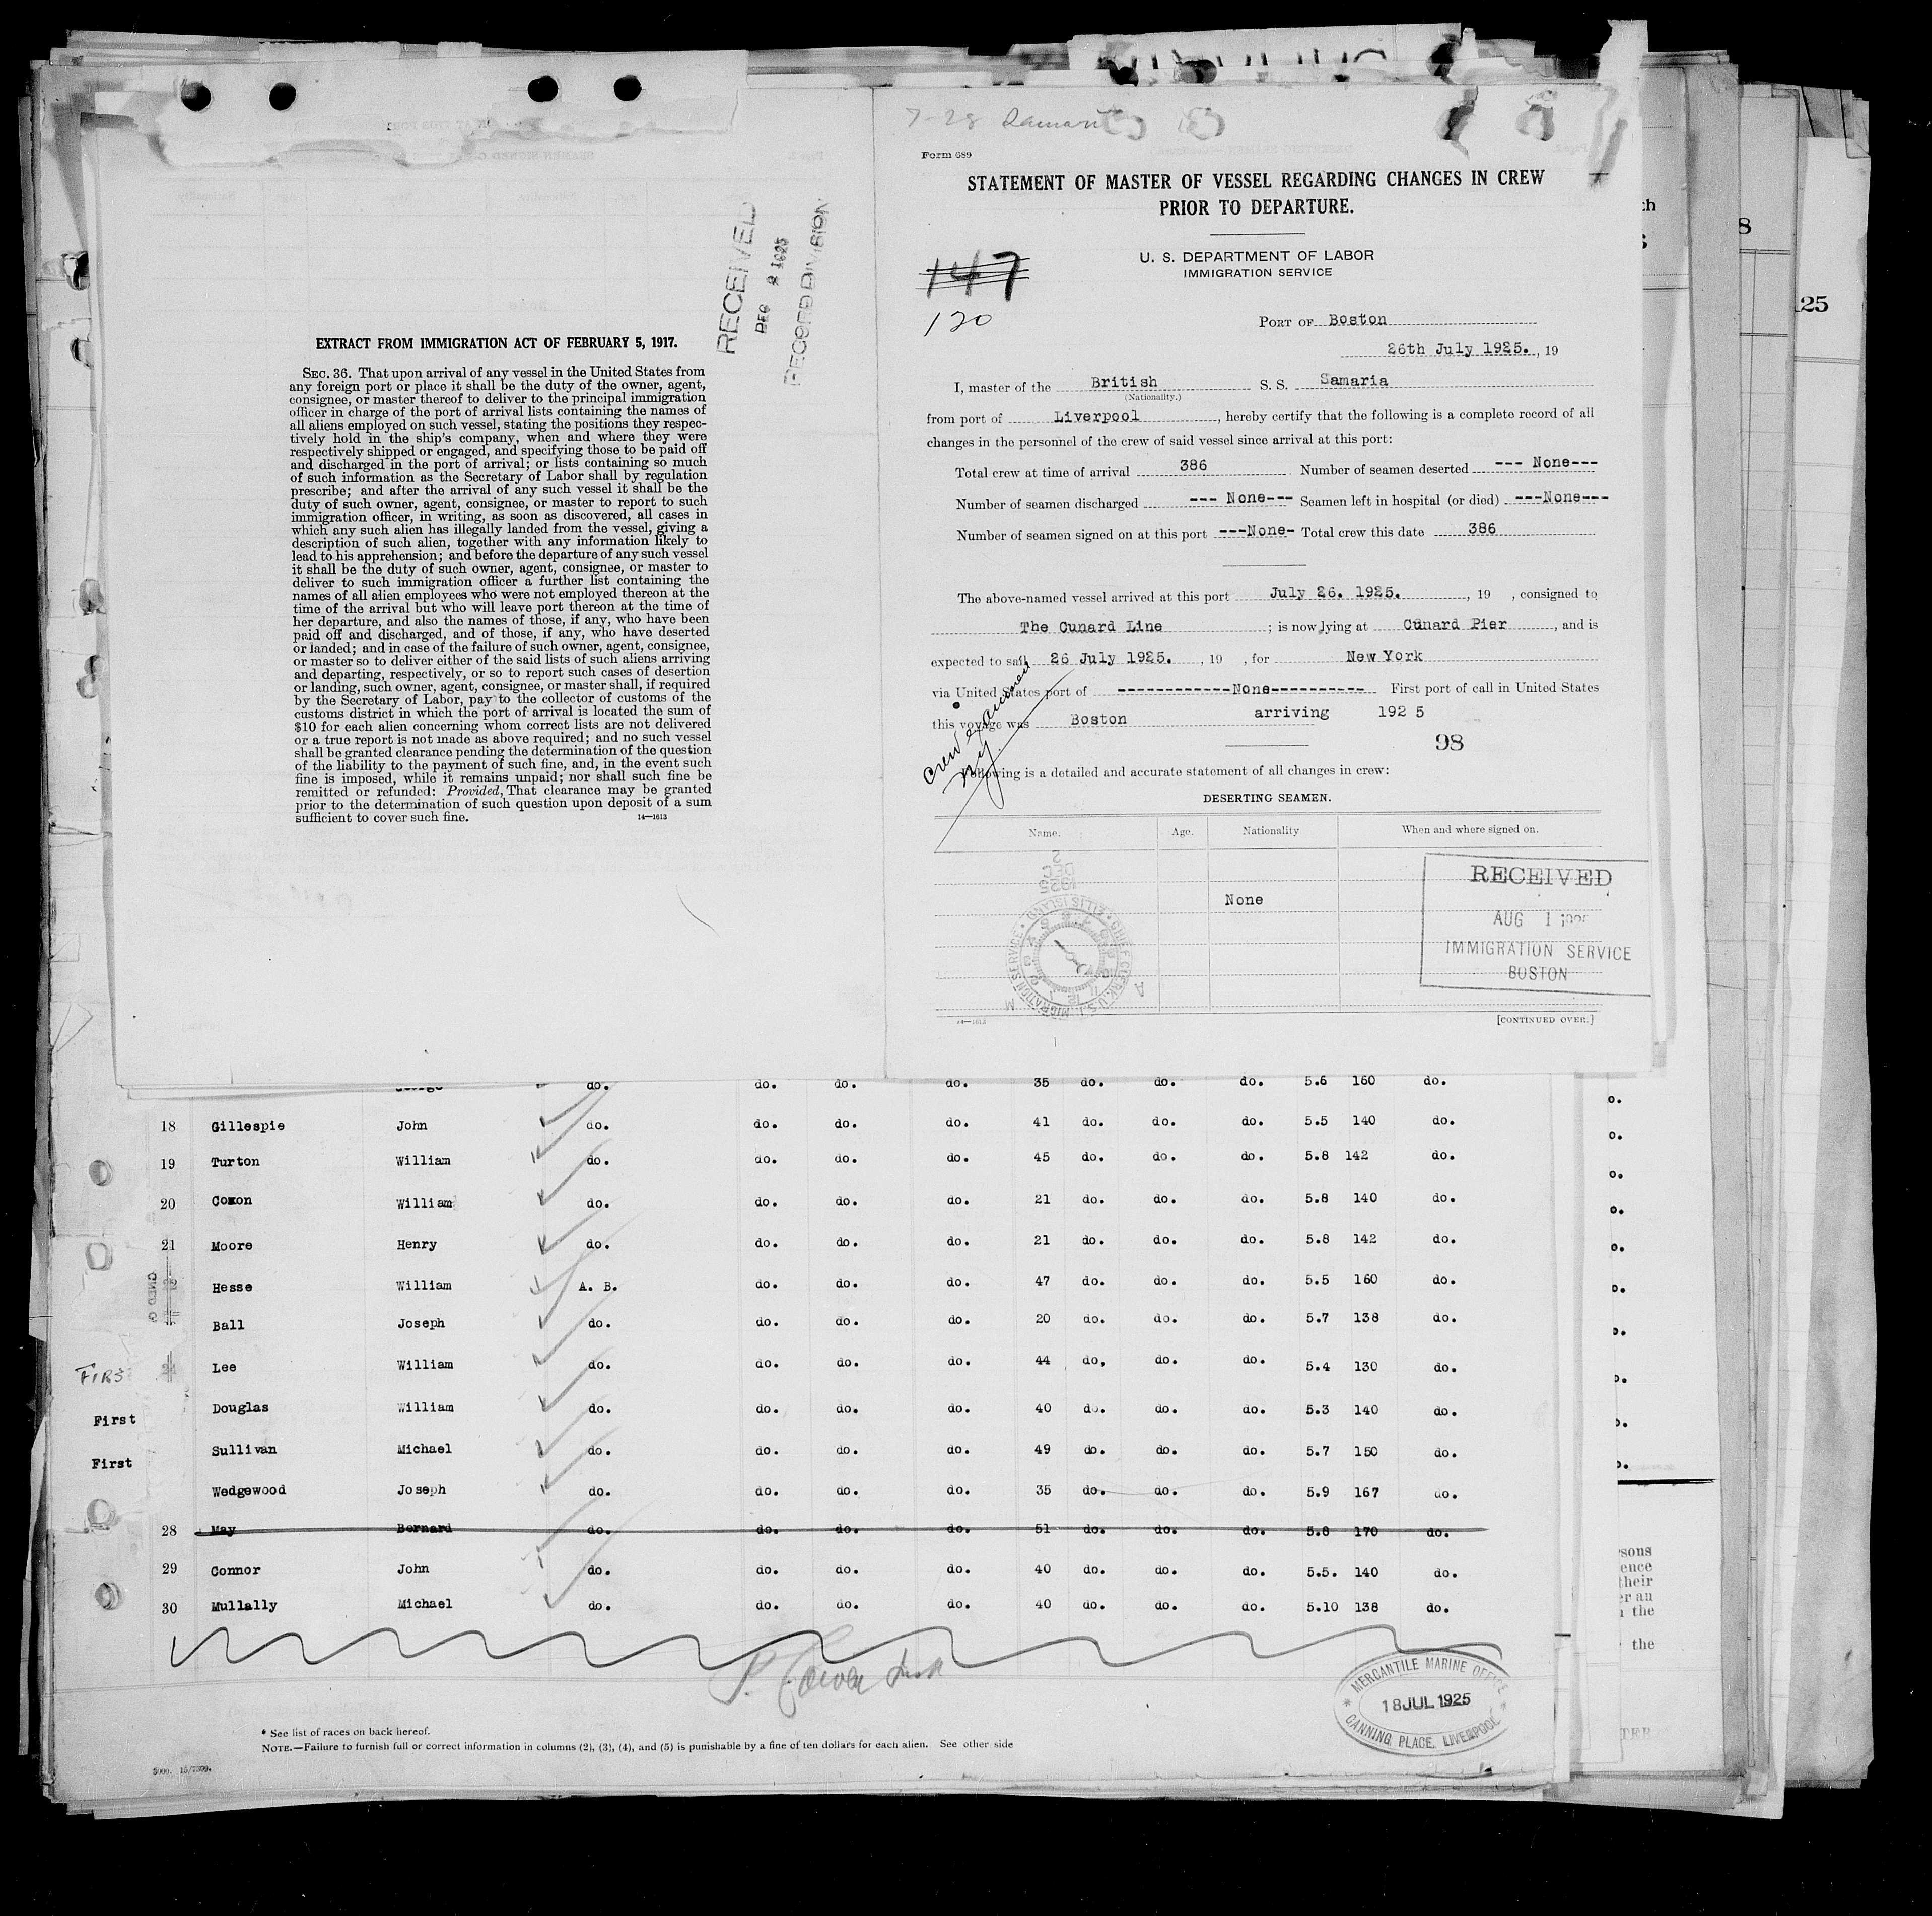 EXTRACT FROM IMMIGRATION ACT OF FEBRUARY 5, 1917.
SEC. 36. That upon arrival of any vessel in the United States from
any foreign port or place it shall be the duty of the owner, agent,
consignee, or master thereof to deliver to the principal immigration
officer in charge of the port of arrival lists containing the names of
all aliens employed on such vessel, stating the positions they respec-
tively hold in the ship's company, when and where they were
respectively shipped or engaged, and specifying those to be paid off
and discharged in the port of arrival; or lists containing so much
of such information as the Secretary of Labor shall by regulation
prescribe; and after the arrival of any such vessel it shall be the
duty of such owner, agent, consignee, or master to report to such
immigration officer, in writing, as soon as discovered, all cases in
which any such alien has illegally landed from the vessel, giving a
description of such alien, together with any information likely to
lead to his apprehension; and before the departure of any such vessel
it shall be the duty of such owner, agent, consignee, or master to
deliver to such immigration officer a further list containing the
names of all alien employees who were not employed thereon at the
time of the arrival but who will leave port thereon at the time of
her departure, and also the names of those, if any, who have been
paid off and discharged, and of those, if any, who have deserted
or landed; and in case of the failure of such owner, agent, consignee,
or master so to deliver either of the said lists of such aliens arriving
and departing, respectively, or so to report such cases of desertion
or landing, such owner, agent, consignee, or master shall, if required
by the Secretary of Labor, pay to the collector of customs of the
customs district in which the port of arrival is located the sum of
$10 for each alien concerning whom correct lists are not delivered
or a true report is not made as above required; and no such vessel
shall be granted clearance pending the determination of the question
of the liability to the payment of such fine, and, in the event such
fine is imposed, while it remains unpaid; nor shall such fine be
remitted or refunded: Provided, That clearance may be granted
prior to the determination of such question upon deposit of a sum
sufficient to cover such fine.
14—1613
RECEIVED
DEC 8 1925
RECORD DIVISION
7-28
Form 689
STATEMENT OF MASTER OF VESSEL REGARDING CHANGES IN CREW
PRIOR TO DEPARTURE.
U. S. DEPARTMENT OF LABOR
IMMIGRATION SERVICE
147
120
PORT OF Boston
26th July 1925. , 19
I, master of the British S. S. Samaria
(Nationality.)
from port of Liverpool , hereby certify that the following is a complete record of all
changes in the personnel of the crew of said vessel since arrival at this port:
Total crew at time of arrival 386 Number of seamen deserted --- None---
Number of seamen discharged --- None--- Seamen left in hospital (or died) ---None---
Number of seamen signed on at this port ---None- Total crew this date 386
The above-named vessel arrived at this port July 26. 1925. , 19 , consigned to
The Cunard Line ; is now lying at Cunard Pier , and is
expected to sail 26 July 1925. , 19 , for New York
via United States port of ------------None---------- First port of call in United States
this voyage was Boston arriving 192 5
98
Crew examined
N.Y.
Following is a detailed and accurate statement of all changes in crew:
DESERTING SEAMEN.
Name. Age. Nationality When and where signed on.
None
RECEIVED
AUG 1 1925
IMMIGRATION SERVICE
BOSTON
1925
DEC
2
CHIEF CLERK, U.S. IMMIGRATION SERVICE ELLIS ISLAND
14—1613
[CONTINUED OVER.]
George do. do. do. do. 35 do. do. do. 5.6 160 do.
18 Gillespie John do. do. do. do. 41 do. do. do. 5.5 140 do.
19 Turton William do. do. do. do. 45 do. do. do. 5.8 142 do.
20 Coxon William do. do. do. do. 21 do. do. do. 5.8 140 do.
21 Moore Henry do. do. do. do. 21 do. do. do. 5.8 142 do.
22 Hesse William A. B. do. do. do. 47 do. do. do. 5.5 160 do.
Ball Joseph do. do. do. do. 20 do. do. do. 5.7 138 do.
FIRS 24 Lee William do. do. do. do. 44 do, do. do. 5.4 130 do.
First Douglas William do. do. do. do. 40 do. do. do. 5.3 140 do.
First Sullivan Michael do. do. do. do. 49 do. do. do. 5.7 150 do.
Wedgewood Joseph do. do. do. do. 35 do. do. do. 5.9 167 do.
28 May Bernard do. do. do. do. 51 do. do. do. 5.8 170 do.
29 Connor John do. do. do. do. 40 do. do. do. 5.5. 140 do.
30 Mullally Michael do. do. do. do. 40 do. do. do. 5.10 138 do.
MERCANTILE MARINE OFFICE
18 JUL 1925
CANNING PLACE, LIVERPOOL
* See list of races on back hereof.
NOTE.—Failure to furnish full or correct information in columns (2), (3), (4), and (5) is punishable by a fine of ten dollars for each alien. See other side
8
25
sons
ence
their
er an
the
the